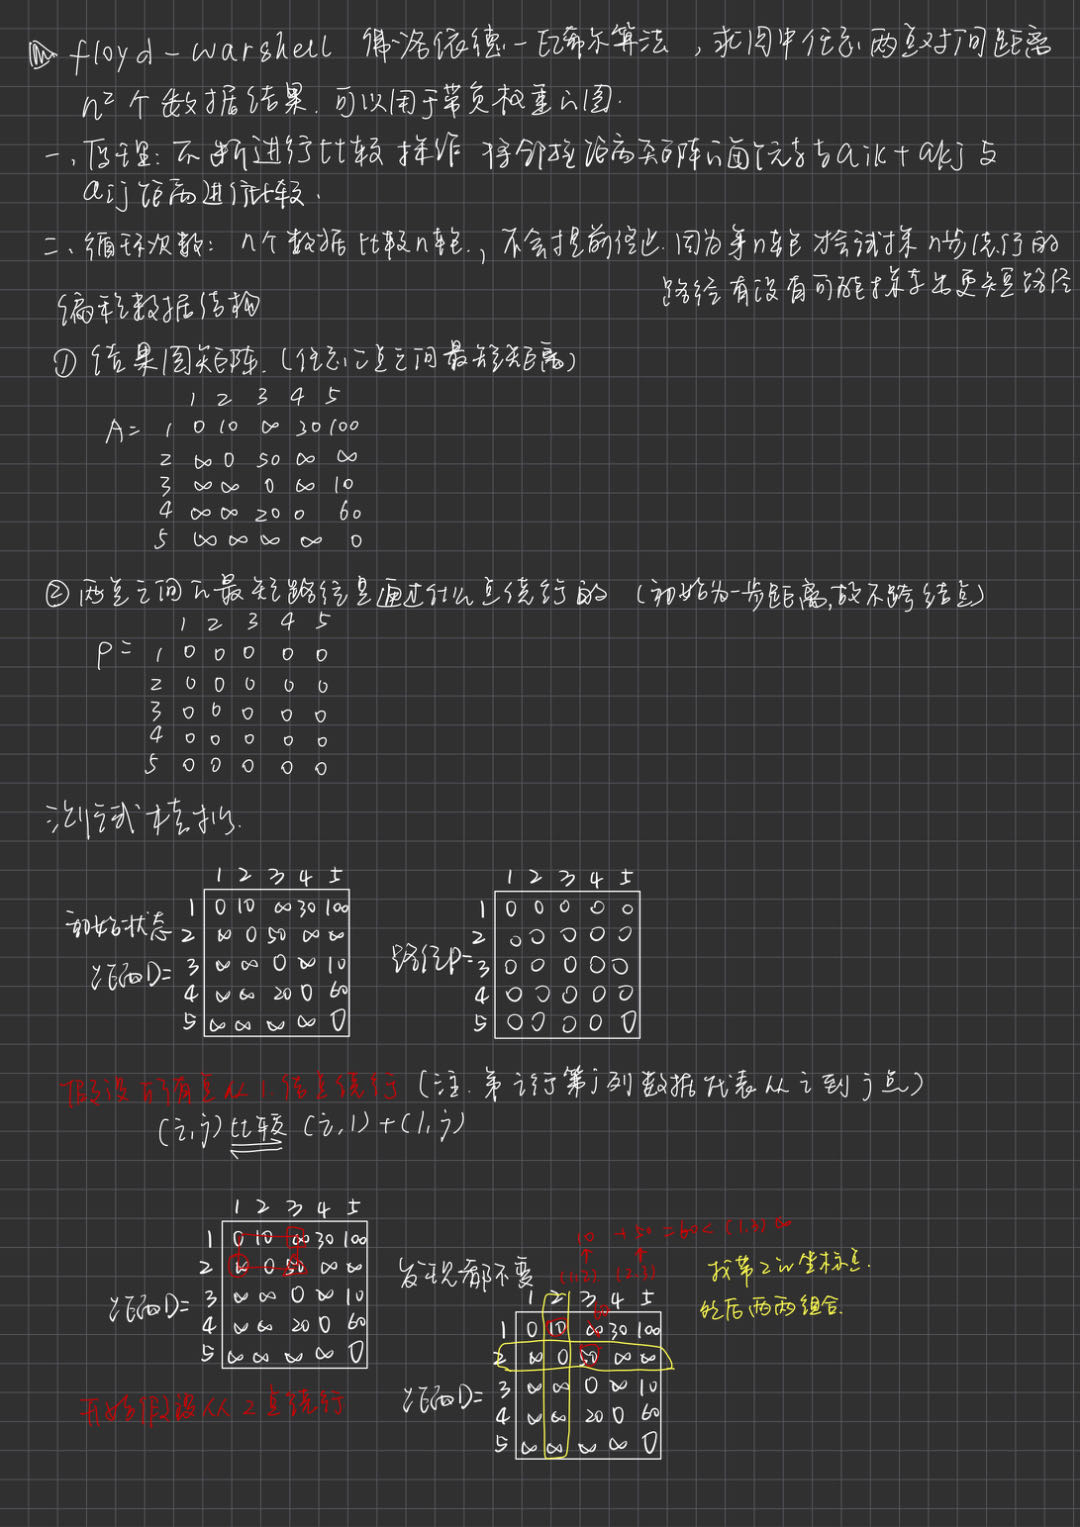 floyd-warshell 佛洛依德-瓦希尔算法，求图中任意两点对间距离
n² 个数据结果. 可以用于带负权重的图.
一、原理: 不断进行比较操作 将邻接距离矩阵的每个元素与aik+akj与
aij距离进行比较.
二、循环次数: n个数据比较n轮, 不会提前终止. 因为第n轮才会试探n步绕行的
路径有没有可能探索出更短路径
编程数据结构
① 结果图矩阵. (任意二点之间最短距离)
1 2 3 4 5
A= 1 0 10 ∞ 30 100
2 ∞ 0 50 ∞ ∞
3 ∞ ∞ 0 ∞ 10
4 ∞ ∞ 20 0 60
5 ∞ ∞ ∞ ∞ 0
② 两点之间的最短路径是通过什么点绕行的 (初始为一步距离,故不跨结点)
1 2 3 4 5
P= 1 0 0 0 0 0
2 0 0 0 0 0
3 0 0 0 0 0
4 0 0 0 0 0
5 0 0 0 0 0
测试模拟.
1 2 3 4 5
1 0 10 ∞ 30 100
初始状态 2 ∞ 0 50 ∞ ∞
距离D= 3 ∞ ∞ 0 ∞ 10
4 ∞ ∞ 20 0 60
5 ∞ ∞ ∞ ∞ 0
1 2 3 4 5
1 0 0 0 0 0
2 0 0 0 0 0
路径P= 3 0 0 0 0 0
4 0 0 0 0 0
5 0 0 0 0 0
假设所有点从1结点绕行 (注. 第i行第j列数据代表从i到j点)
(i,j) 比较 (i,1)+(1,j)
1 2 3 4 5
1 0 10 ∞ 30 100
2 ∞ 0 50 ∞ ∞
距离D= 3 ∞ ∞ 0 ∞ 10
4 ∞ ∞ 20 0 60
5 ∞ ∞ ∞ ∞ 0
发现都不变
开始假设从2点绕行
10 + 50 = 60 < (1,3) ∞
(1,2) (2,3)
找带2的坐标点.
然后两两组合.
1 2 3 4 5
60
1 0 10 ∞ 30 100
2 ∞ 0 50 ∞ ∞
距离D= 3 ∞ ∞ 0 ∞ 10
4 ∞ ∞ 20 0 60
5 ∞ ∞ ∞ ∞ 0